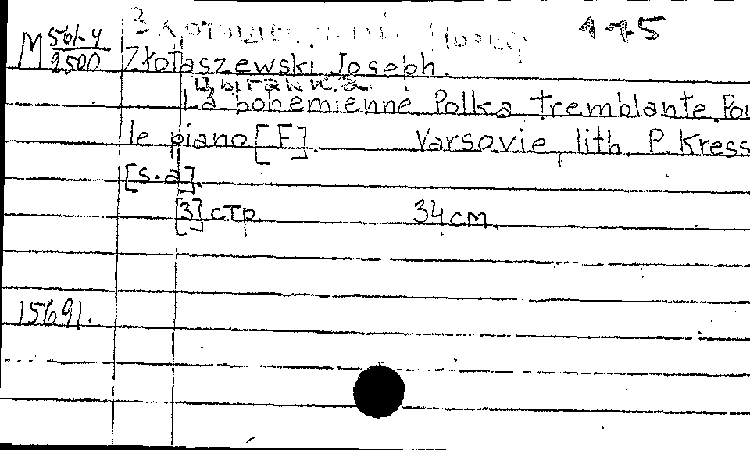 1-75
M 561-4
2500
Złotaszewski Joseph.
Цыганка
La bohemienne Polka tremblante Pou
le piano [F]. Varsovie, lith. P. Kress
[s.a].
[3] стр. 34 см
15691.